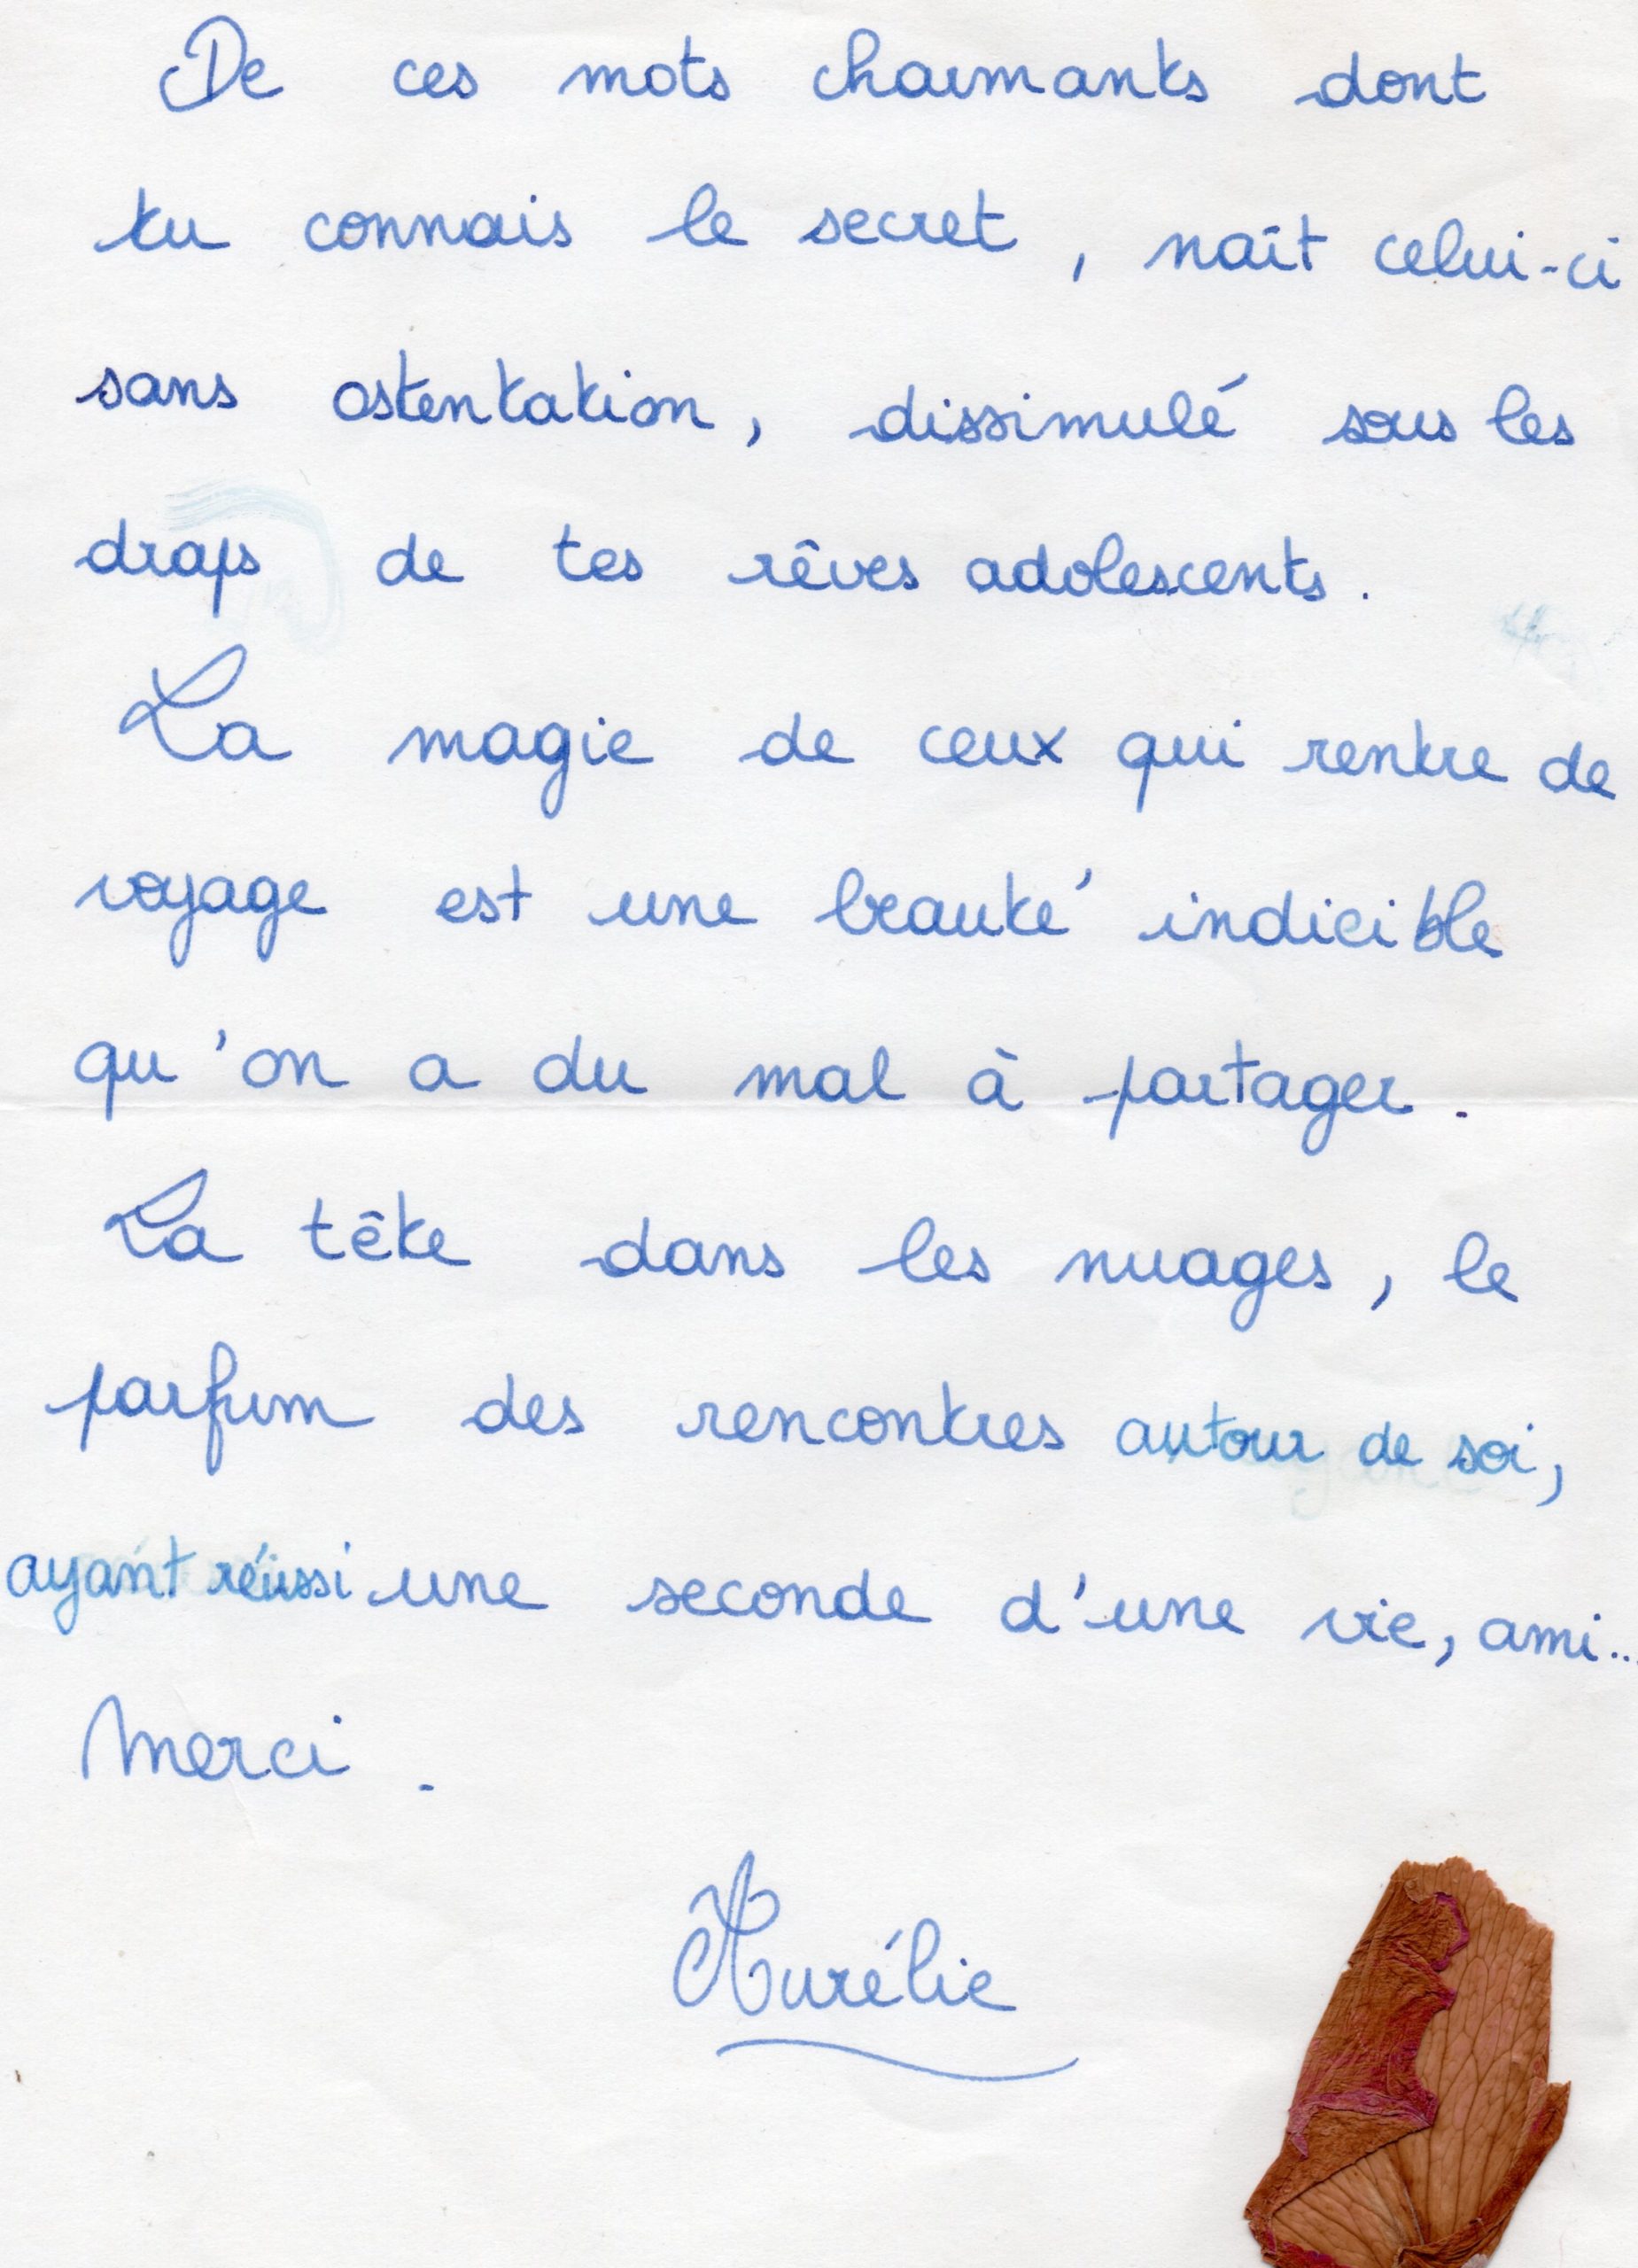 De ces mots charmants dont
tu connais le secret, naît celui-ci
sans ostentation, dissimulé sous les
draps de tes rêves adolescents.
La magie de ceux qui rentre de
voyage est une beauté indicible
qu'on a du mal à partager.
La tête dans les nuages, le
parfum des rencontres autour de soi,
ayant réussi une seconde d'une vie, ami...
Merci.
Aurélie